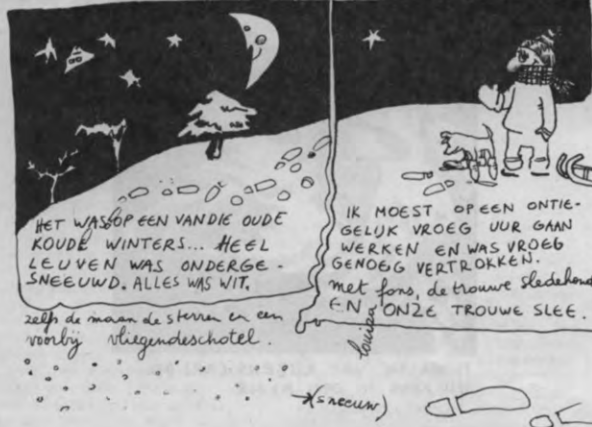 HET WAS OP EEN VAN DIE OUDE
KOUDE WINTERS... HEEL
LEUVEN WAS ONDERGE-
SNEEUWD. ALLES WAS WIT.
zelfs de maan de sterren en een
voorbij vliegende schotel.
→ (sneeuw)
IK MOEST OP EEN ONTIE-
GELIJK VROEG UUR GAAN
WERKEN EN WAS VROEG
GENOEG VERTROKKEN.
met fons, de trouwe sledehond
EN ONZE TROUWE SLEE.
louisa